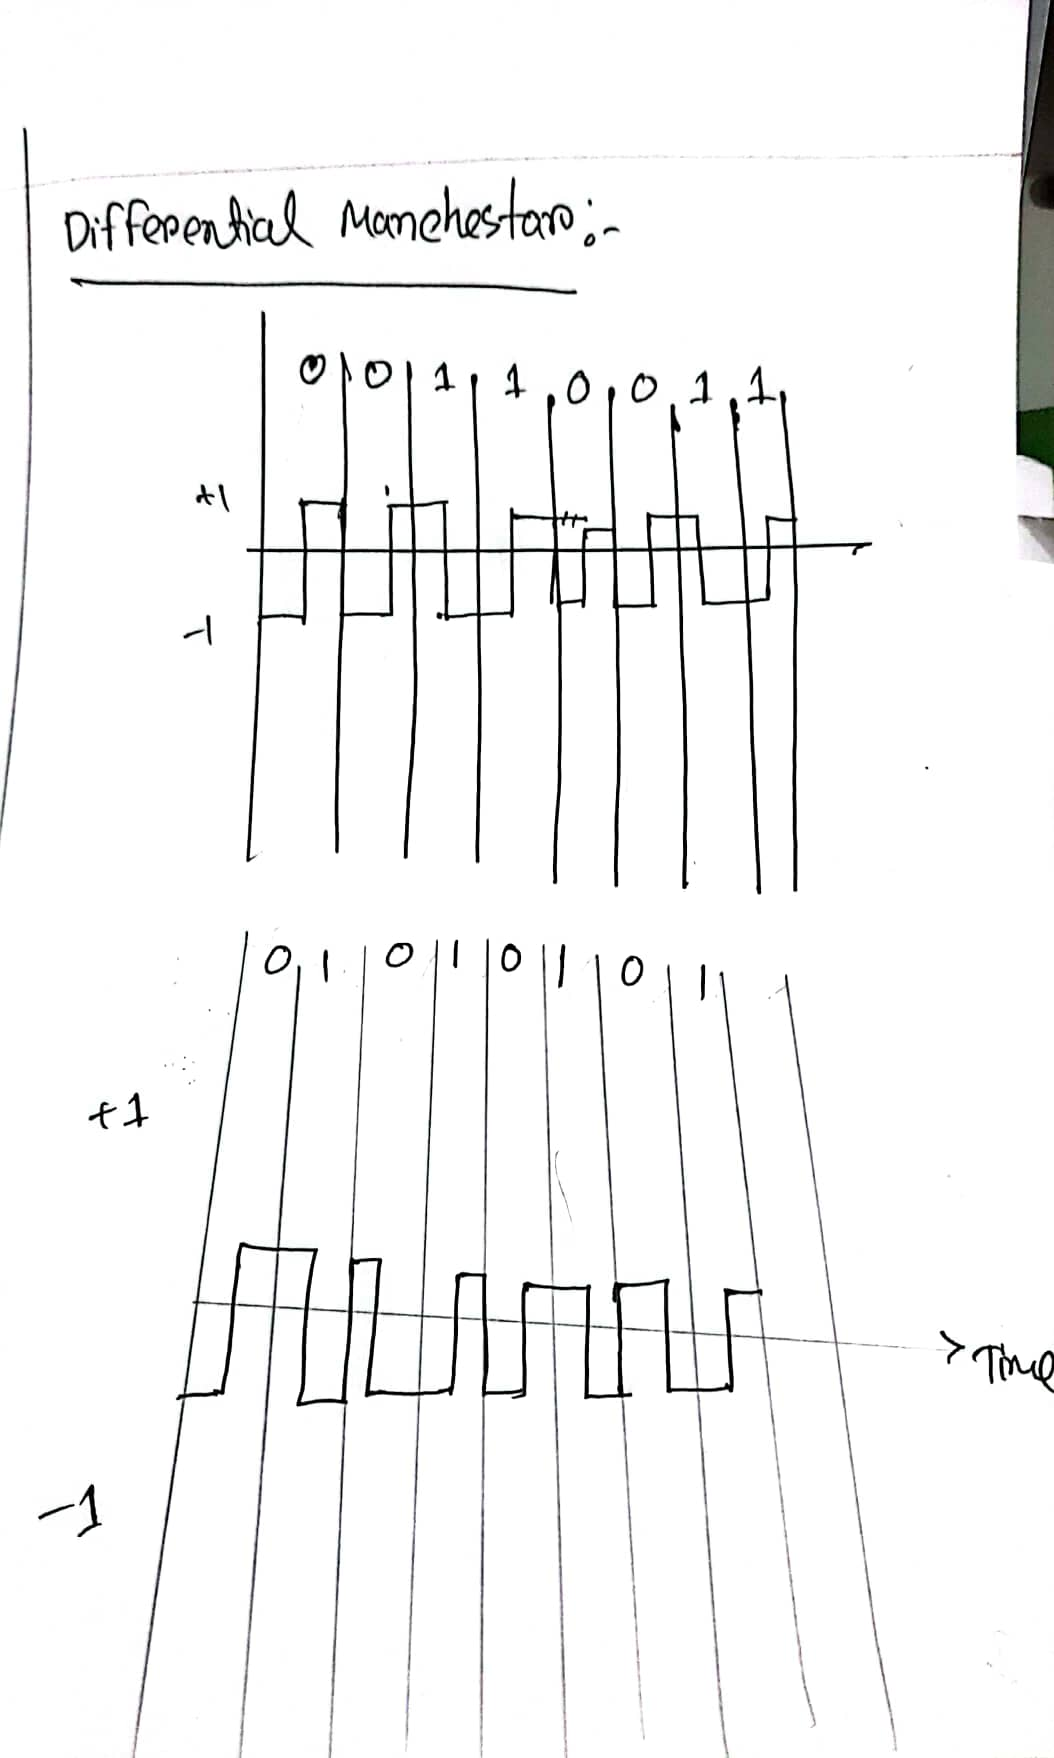 Differential Manchestar :-
0 0 1 1 0 0 1 1
+1
-1
0 1 0 1 0 1 0 1
+1
> Time
-1